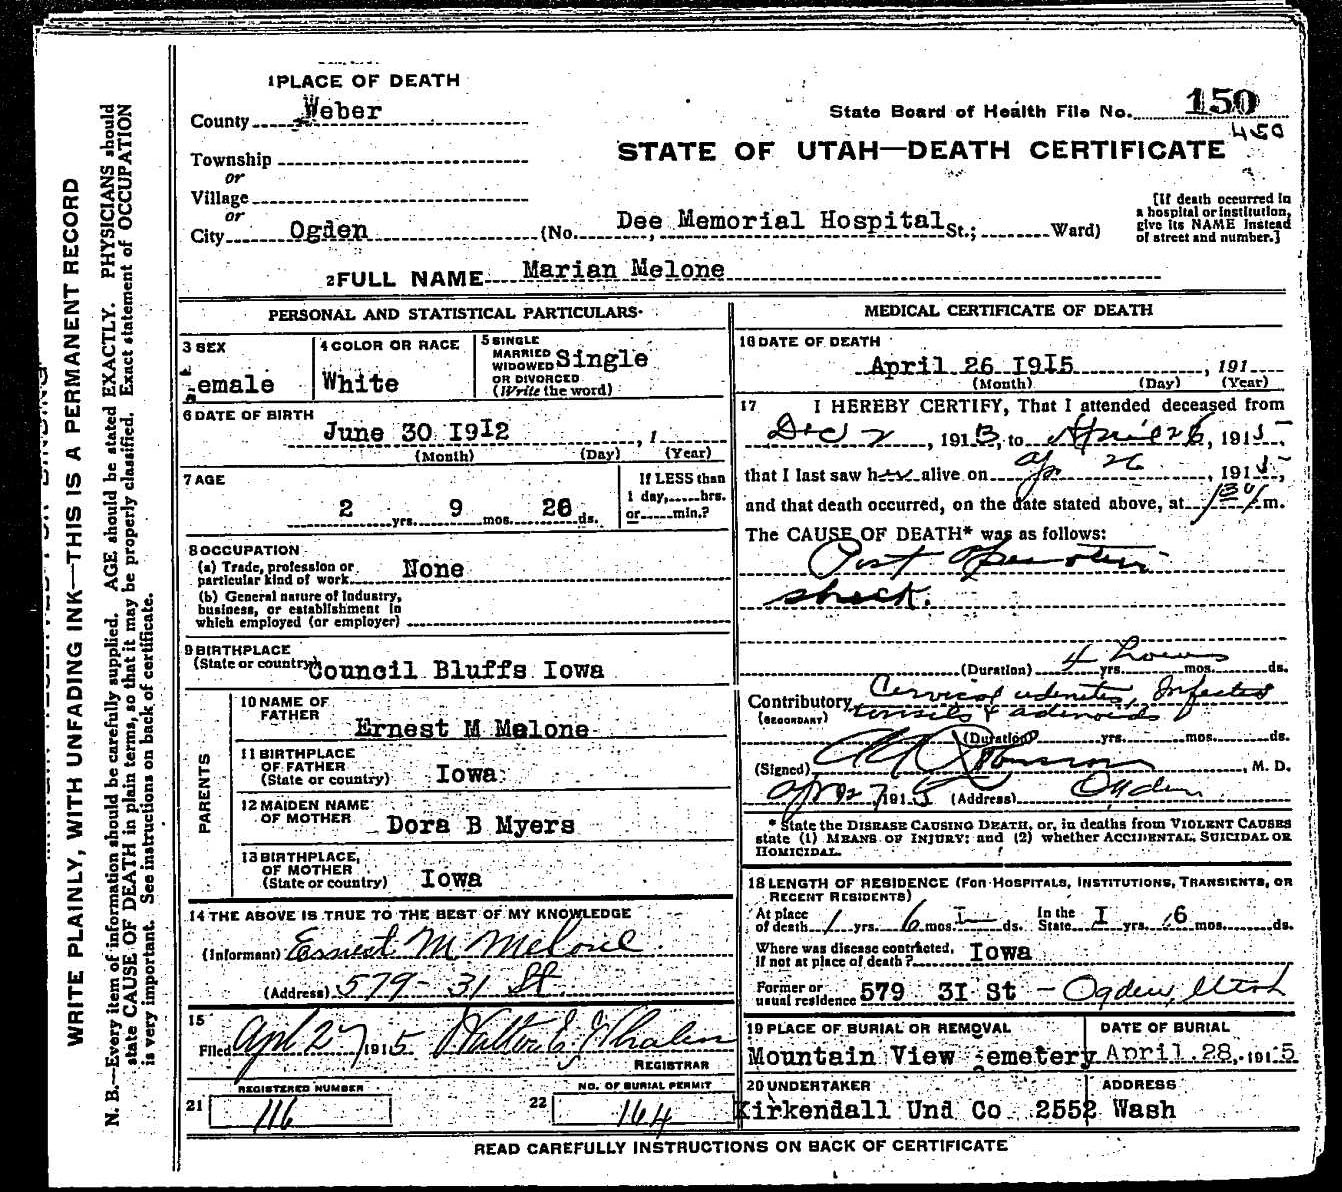 1 PLACE OF DEATH
County Weber
State Board of Health File No. 150
450
Township
or
STATE OF UTAH—DEATH CERTIFICATE
Village
or
City Ogden (No. Dee Memorial Hospital St.; Ward)
[If death occurred in
a hospital or institution,
give its NAME instead
of street and number.]
2 FULL NAME Marian Melone
PERSONAL AND STATISTICAL PARTICULARS
3 SEX
emale
4 COLOR OR RACE
White
5 SINGLE
MARRIED
WIDOWED
OR DIVORCED
(Write the word)
Single
6 DATE OF BIRTH
June 30 1912 , 1
(Month) (Day) (Year)
7 AGE
2 yrs. 9 mos. 26 ds.
If LESS than
1 day, hrs.
or min.?
8 OCCUPATION
(a) Trade, profession or
particular kind of work None
(b) General nature of industry,
business, or establishment in
which employed (or employer)
9 BIRTHPLACE
(State or country) Council Bluffs Iowa
PARENTS
10 NAME OF
FATHER
Ernest M Melone
11 BIRTHPLACE
OF FATHER
(State or country) Iowa
12 MAIDEN NAME
OF MOTHER
Dora B Myers
13 BIRTHPLACE,
OF MOTHER
(State or country) Iowa
14 THE ABOVE IS TRUE TO THE BEST OF MY KNOWLEDGE
(Informant) Ernest M Melone.
(Address) 579 - 31 St
15
Filed Apl 27 1915 Walton E Whalen
REGISTRAR
REGISTERED NUMBER
21 116
NO. OF BURIAL PERMIT
22 164
MEDICAL CERTIFICATE OF DEATH
16 DATE OF DEATH
April 26 1915 , 191
(Month) (Day) (Year)
17 I HEREBY CERTIFY, That I attended deceased from
Dec 2 , 1913, to April 26, 1915,
that I last saw her alive on Apr 26 , 1915,
and that death occurred, on the date stated above, at 130 m.
The CAUSE OF DEATH* was as follows:
Post Operative
shock.
(Duration) 4 hours yrs. mos. ds.
Contributory Cervical adenites, Infected
(SECONDARY) tonsils & adenoids
(Duration) yrs. mos. ds.
(Signed) , M. D.
Apr 27 1915 (Address) Ogden
* State the DISEASE CAUSING DEATH, or, in deaths from VIOLENT CAUSES
state (1) MEANS OF INJURY; and (2) whether ACCIDENTAL, SUICIDAL OR
HOMICIDAL.
18 LENGTH OF RESIDENCE (FOR HOSPITALS, INSTITUTIONS, TRANSIENTS, OR
RECENT RESIDENTS)
At place
of death 1 yrs. 6 mos. ds.
In the
State 1 yrs. 6 mos. ds.
Where was disease contracted,
if not at place of death? Iowa
Former or
usual residence 579 31 St - Ogden, Utah
19 PLACE OF BURIAL OR REMOVAL
Mountain View emetery
DATE OF BURIAL
April 28, 1915
20 UNDERTAKER
Kirkendall Und Co
ADDRESS
2552 Wash
READ CAREFULLY INSTRUCTIONS ON BACK OF CERTIFICATE
WRITE PLAINLY, WITH UNFADING INK—THIS IS A PERMANENT RECORD
N. B.—Every item of information should be carefully supplied. AGE should be stated EXACTLY. PHYSICIANS should
state CAUSE OF DEATH in plain terms, so that it may be properly classified. Exact statement of OCCUPATION
is very important. See instructions on back of certificate.